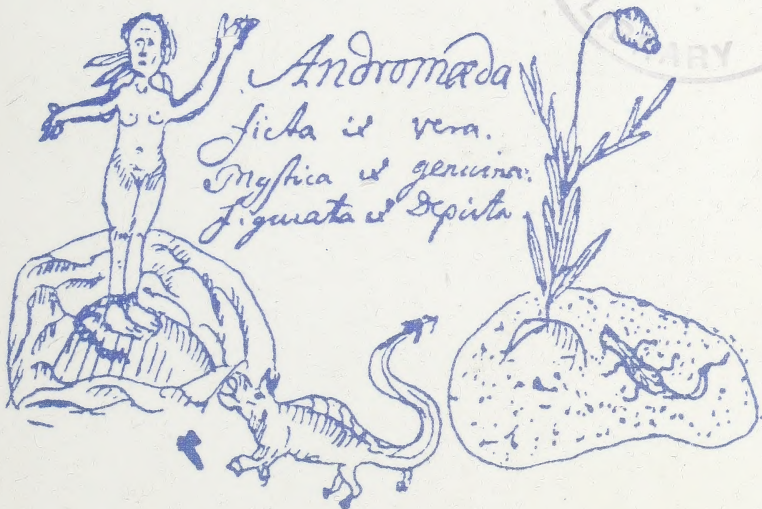 Andromæda
ficta et vera.
Mystica et genuina.
figurata et Depicta
ARY